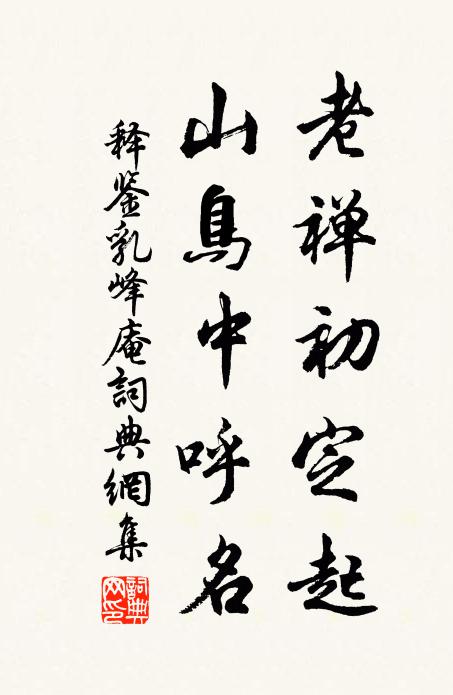 老禅初定起
山鳥中呼名
释鉴乳峰庵詞典網集
詞典网印